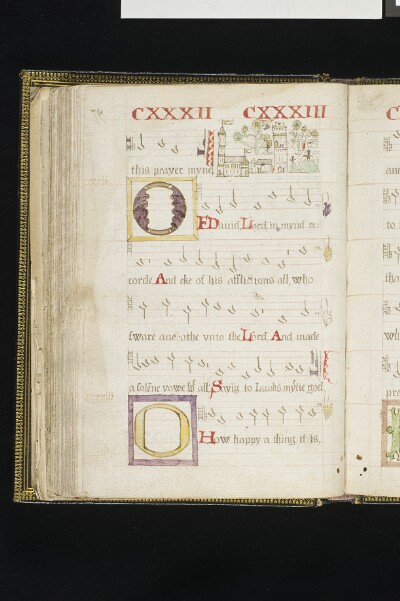 CXXXII CXXXIII
this prayer myne
OF Dauid Lord in mynd re
corde, And eke of his afflictions all, who
sware and othe vnto the Lord And made
a solēne vowe wᵗʰ all Sayīg to Iacobs mytie god
O How happy a thing it is,